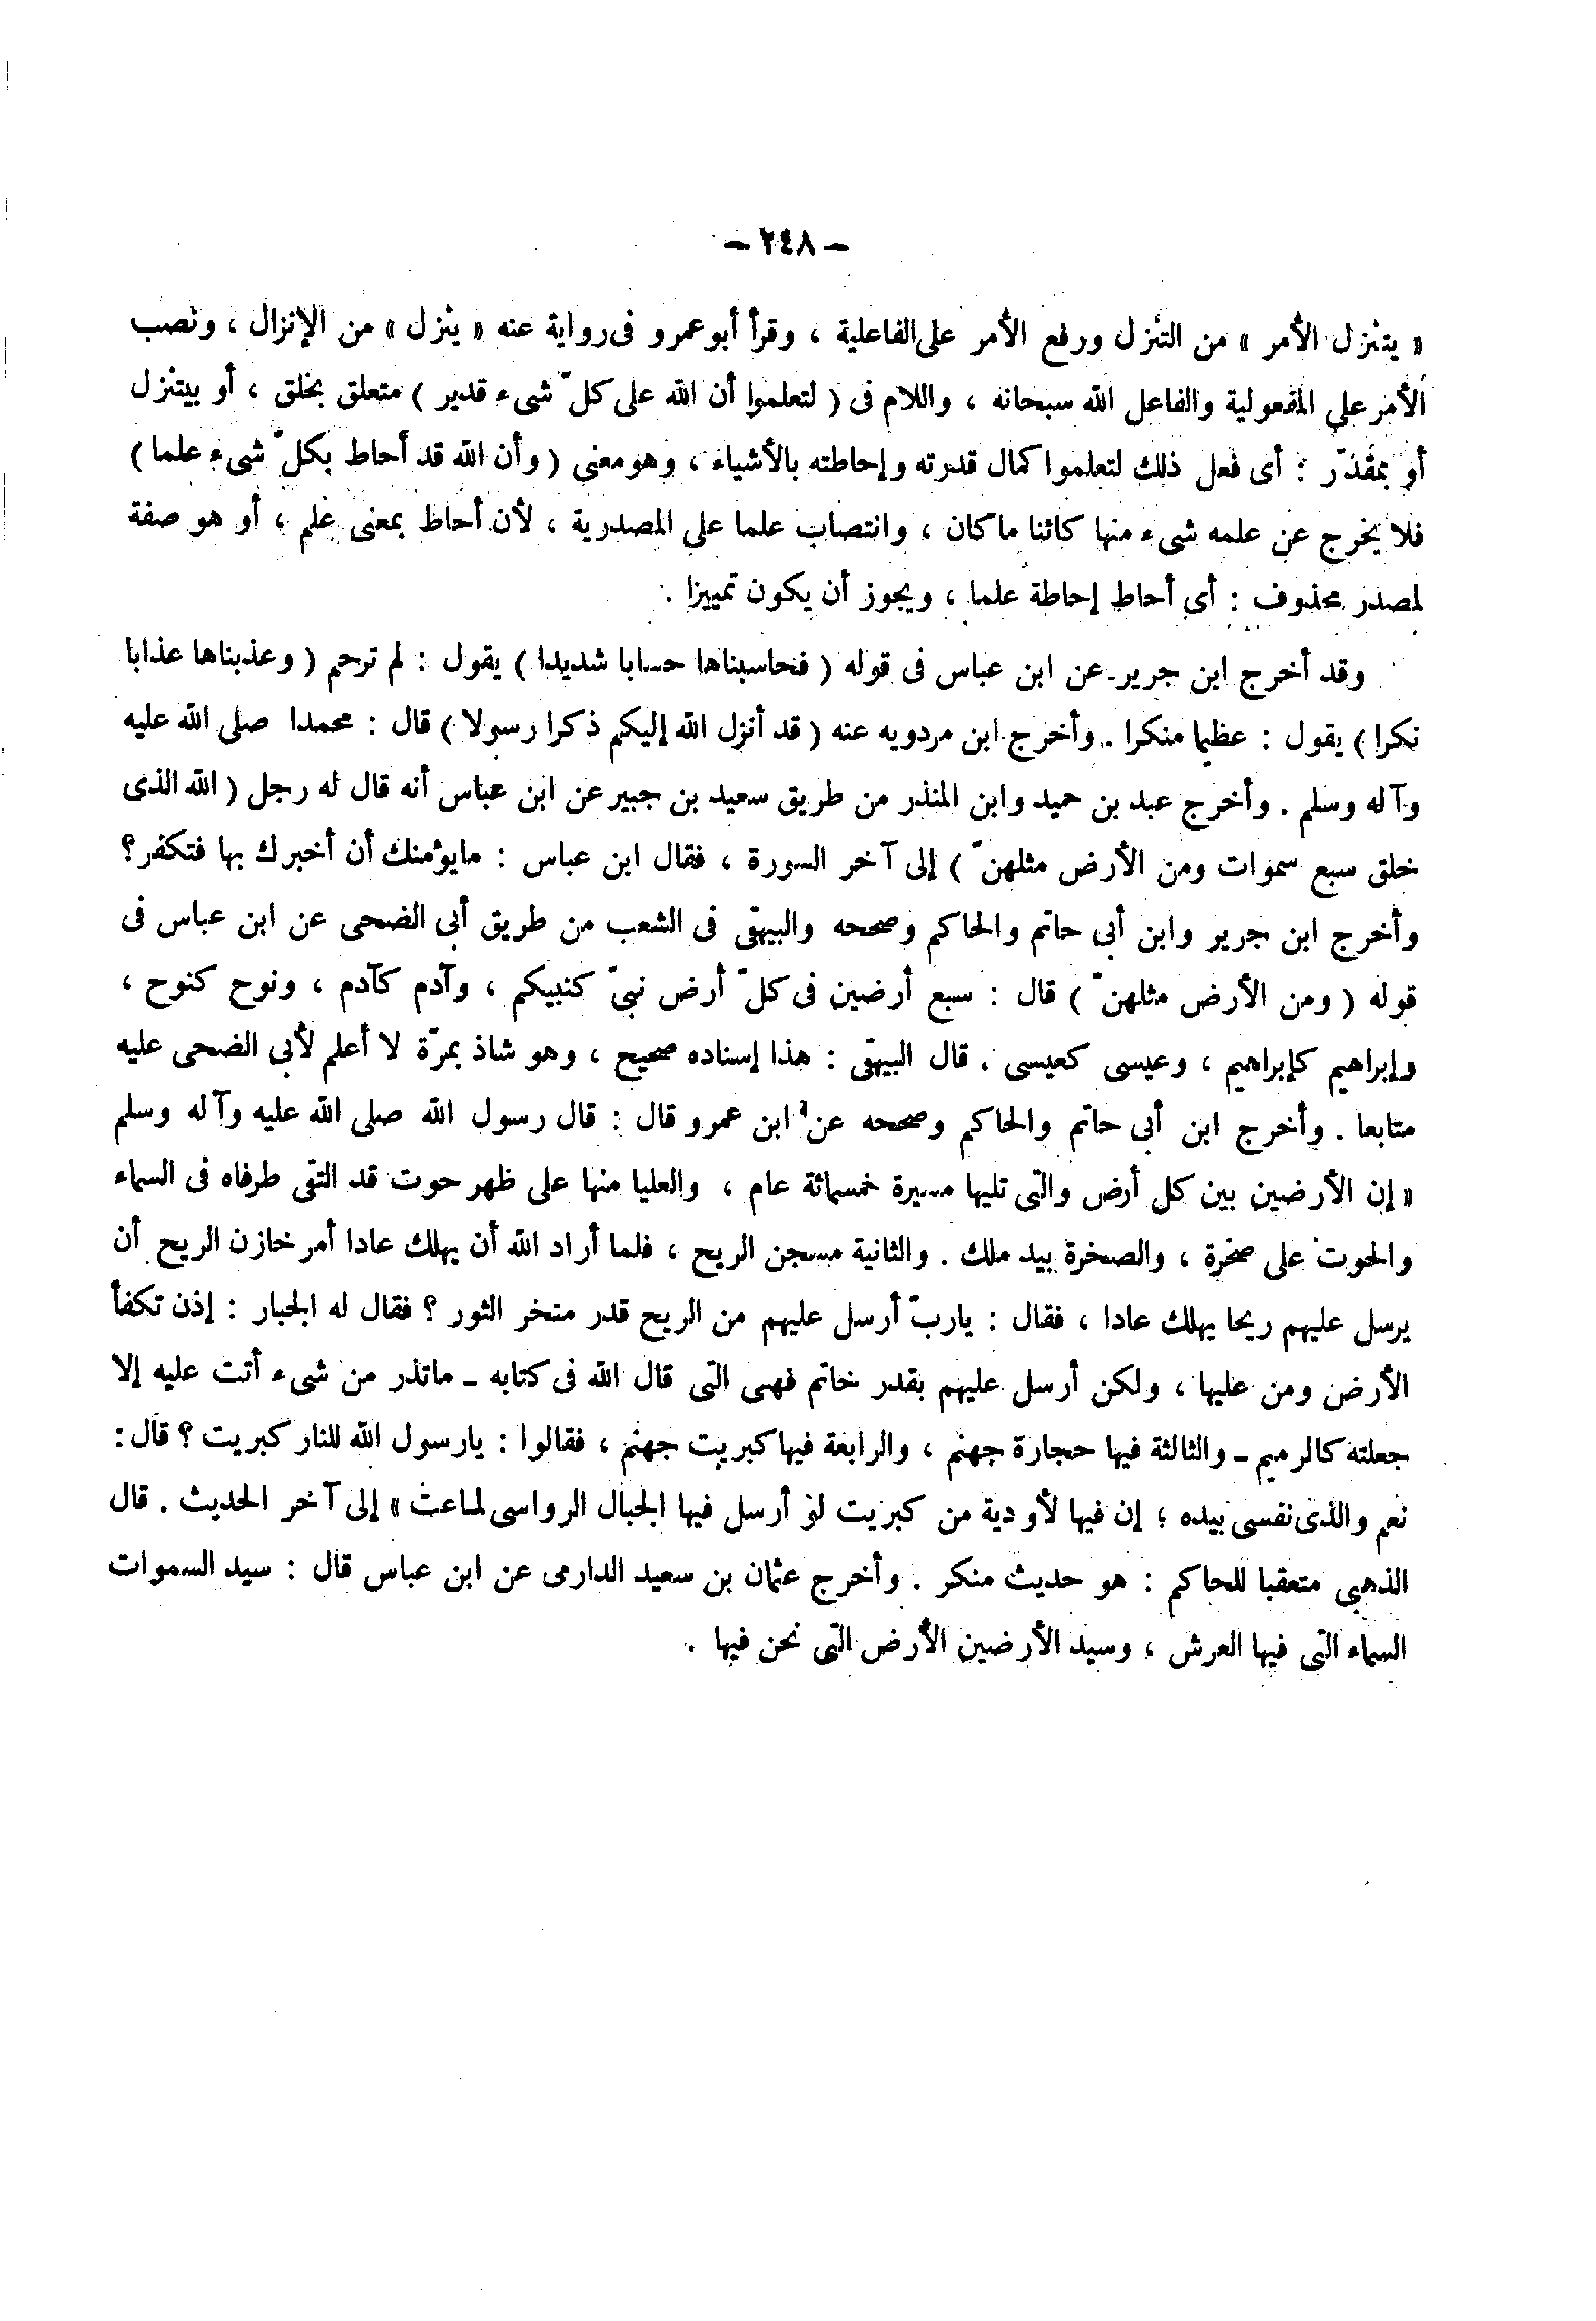 – ٢٤٨ –
« يتنزل الأمر » من التنزل ورفع الأمر على الفاعلية ، وقرأ أبو عمرو فى رواية عنه « ينزل » من الإنزال ، ونصب
الأمر على المفعولية والفاعل الله سبحانه ، واللام فى ( لتعلموا أن الله على كلّ شىء قدير ) متعلق بخلق ، أو بيتنزل
أو بمقدّر : أى فعل ذلك لتعلموا كمال قدرته وإحاطته بالأشياء ، وهو معنى ( وأن الله قد أحاط بكلّ شىء علما )
فلا يخرج عن علمه شىء منها كائنا ما كان ، وانتصاب علما على المصدرية ، لأن أحاط بمعنى علم ، أو هو صفة
لمصدر محذوف : أى أحاط إحاطة علما ، ويجوز أن يكون تمييزا .
وقد أخرج ابن جرير عن ابن عباس فى قوله ( فحاسبناها حسابا شديدا ) يقول : لم ترحم ( وعذبناها عذابا
نكرا ) يقول : عظيما منكرا . وأخرج ابن مردويه عنه ( قد أنزل الله إليكم ذكرا رسولا ) قال : محمدا صلى الله عليه
وآله وسلم . وأخرج عبد بن حميد وابن المنذر من طريق سعيد بن جبير عن ابن عباس أنه قال له رجل ( الله الذى
خلق سبع سموات ومن الأرض مثلهنّ ) إلى آخر السورة ، فقال ابن عباس : مايؤمنك أن أخبرك بها فتكفر؟
وأخرج ابن جرير وابن أبى حاتم والحاكم وصححه والبيهقى فى الشعب من طريق أبى الضحى عن ابن عباس فى
قوله ( ومن الأرض مثلهنّ ) قال : سبع أرضين فى كلّ أرض نبىّ كنبيكم ، وآدم كآدم ، ونوح كنوح ،
وإبراهيم كإبراهيم ، وعيسى كعيسى . قال البيهقى : هذا إسناده صحيح ، وهو شاذ بمرّة لا أعلم لأبى الضحى عليه
متابعا . وأخرج ابن أبى حاتم والحاكم وصححه عن ابن عمرو قال : قال رسول الله صلى الله عليه وآله وسلم
« إن الأرضين بين كل أرض والتى تليها مسيرة خمسمائة عام ، والعليا منها على ظهر حوت قد التقى طرفاه فى السماء
والحوت على صخرة ، والصخرة بيد ملك . والثانية مسجن الريح ، فلما أراد الله أن يهلك عادا أمر خازن الريح أن
يرسل عليهم ريحا يهلك عادا ، فقال : ياربّ أرسل عليهم من الريح قدر منخر الثور ؟ فقال له الجبار : إذن تكفأ
الأرض ومن عليها ، ولكن أرسل عليهم بقدر خاتم فهى التى قال الله فى كتابه – ماتذر من شىء أتت عليه إلا
جعلته كالرميم – والثالثة فيها حجارة جهنم ، والرابعة فيها كبريت جهنم ، فقالوا : يارسول الله للنار كبريت ؟ قال :
نعم والذى نفسى بيده ؛ إن فيها لأودية من كبريت لو أرسل فيها الجبال الرواسى لماعت » إلى آخر الحديث . قال
الذهبى متعقبا للحاكم : هو حديث منكر . وأخرج عثمان بن سعيد الدارمى عن ابن عباس قال : سيد السموات
السماء التى فيها العرش ، وسيد الأرضين الأرض التى نحن فيها .